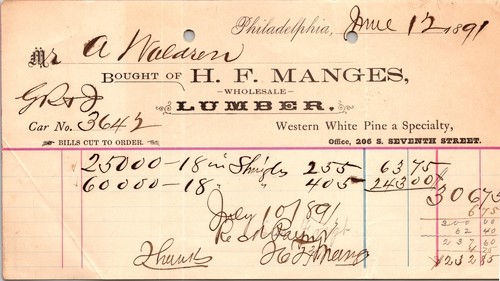 Philadelphia, June 12 1891
Mr A Waldren
BOUGHT OF H. F. MANGES,
WHOLESALE
LUMBER.
CAR NO. 3642 Western White Pine a Specialty,
BILLS CUT TO ORDER. Office, 206 S. SEVENTH STREET.
25000 - 18 in Shingles 255 6375
60000 - 18 " " 405 24300
30675
675
300 00
62 40
237 60
4 75
$232 85
July 10/891
Thanks H F Mang